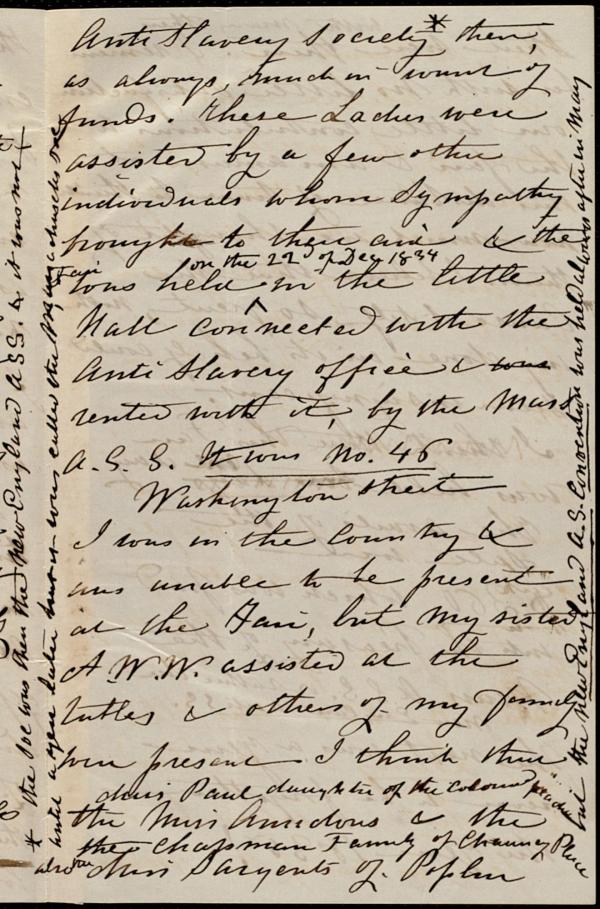 Anti Slavery Society* then,
as always, much in want of
funds. These Ladies were
assisted by a few other
individuals whom sympathy
brought to their aid & the
Fair on the 22d of Dec 1834
was held in the little
Hall connected with the
Anti Slavery office & was
rented with it, by the Mass
A. S. S. It was No. 46
Washington Street
I was in the Country &
was unable to be present
at the Fair, but my sister
A. W. W. assisted at the
tables & others of my family
were present. I think that
Miss Paul daughter of the coloured preacher
the Miss Ammidons & the
the Chapman Family of Chauncy Place
also the Miss Sargents of Poplar
* the Soc was then the New England A. S. S. & it was not
until a year later that it was called the Massachusetts Soc
but the New England A. S. Convention was held always after in May